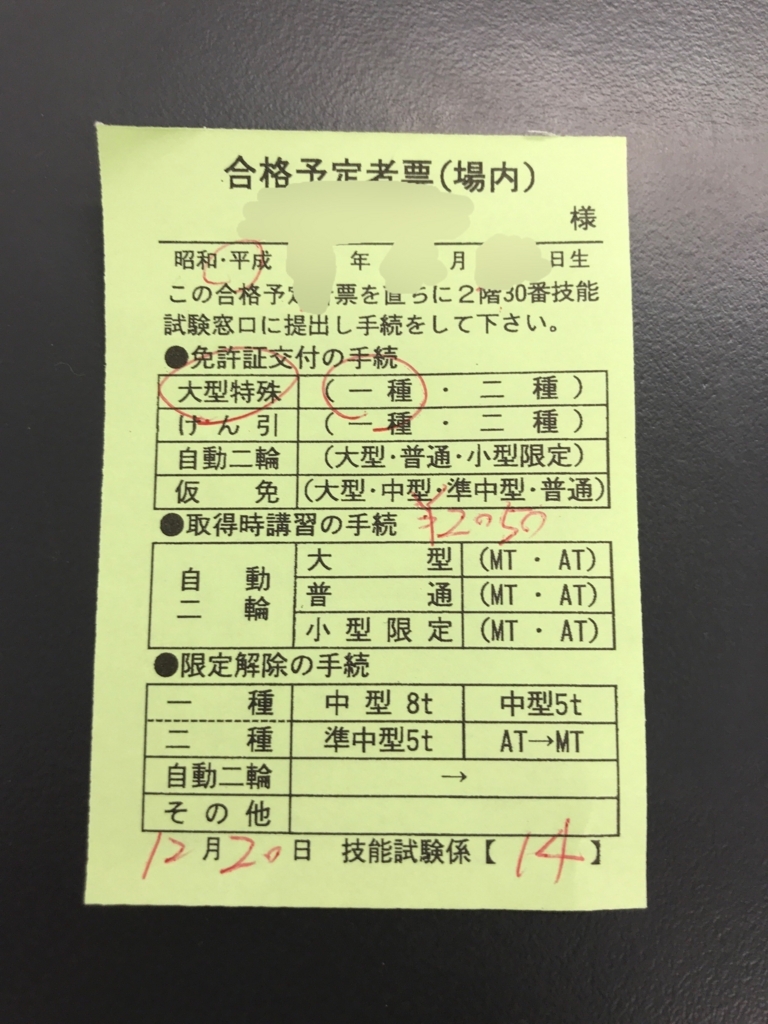 合格予定者票(場内)
様
昭和・平成 年 月 日生
この合格予定者票を直ちに2階30番技能
試験窓口に提出し手続をして下さい。
●免許証交付の手続
大型特殊 (一種・二種)
けん引 (一種・二種)
自動二輪 (大型・普通・小型限定)
仮免 (大型・中型・準中型・普通)
●取得時講習の手続 ¥2050
自動二輪 大型 (MT・AT)
普通 (MT・AT)
小型限定 (MT・AT)
●限定解除の手続
一種 中型8t 中型5t
二種 準中型5t AT→MT
自動二輪 →
その他
12月20日 技能試験係【14】